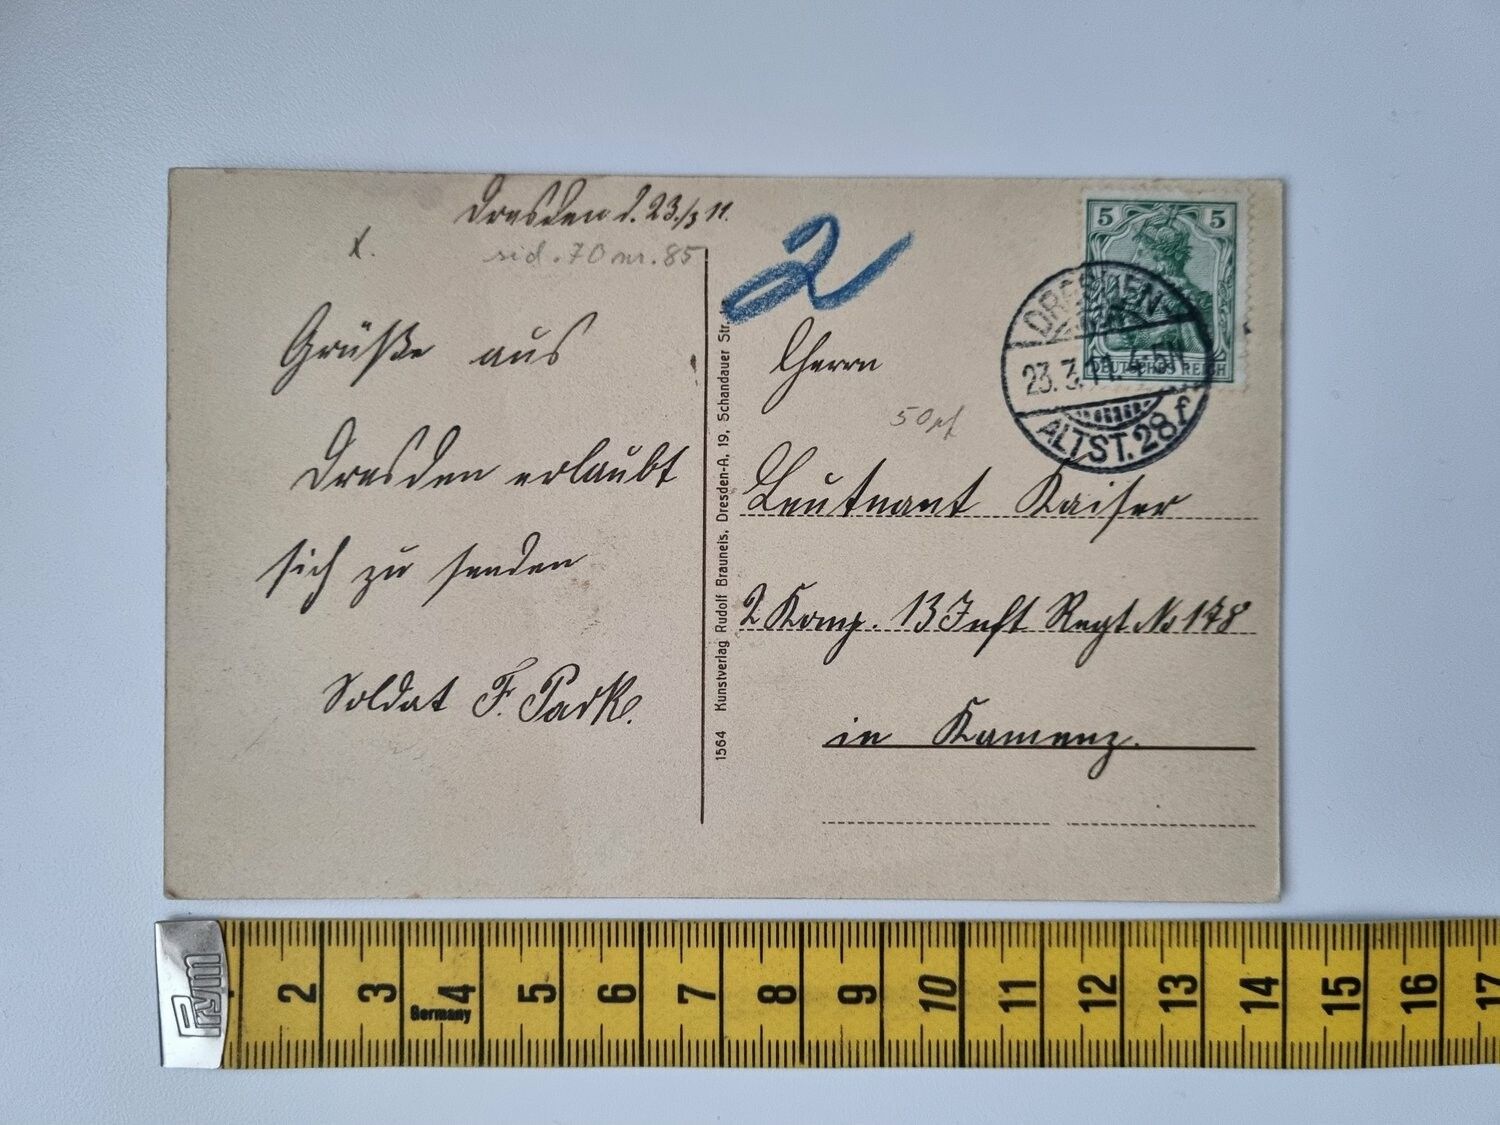 Dresden d. 23./3 11.
x.
sid. 70 nr. 85
Grüße aus
Dresden erlaubt
sich zu senden
Soldat F. Park.
1564 Kunstverlag Rudolf Brauneis, Dresden-A, 19, Schandauer Str.
2
5 5
DEUTSCHES REICH
DRESDEN
23.3.11. 4-5N
ALTST. 28 f
Herrn
50 pf
Leutnant Kaiser
2 Komp. 13 Inft Regt. No 178
in Kamenz.
Prym
2 3 4 5 6 7 8 9 10 11 12 13 14 15 16 17
Germany